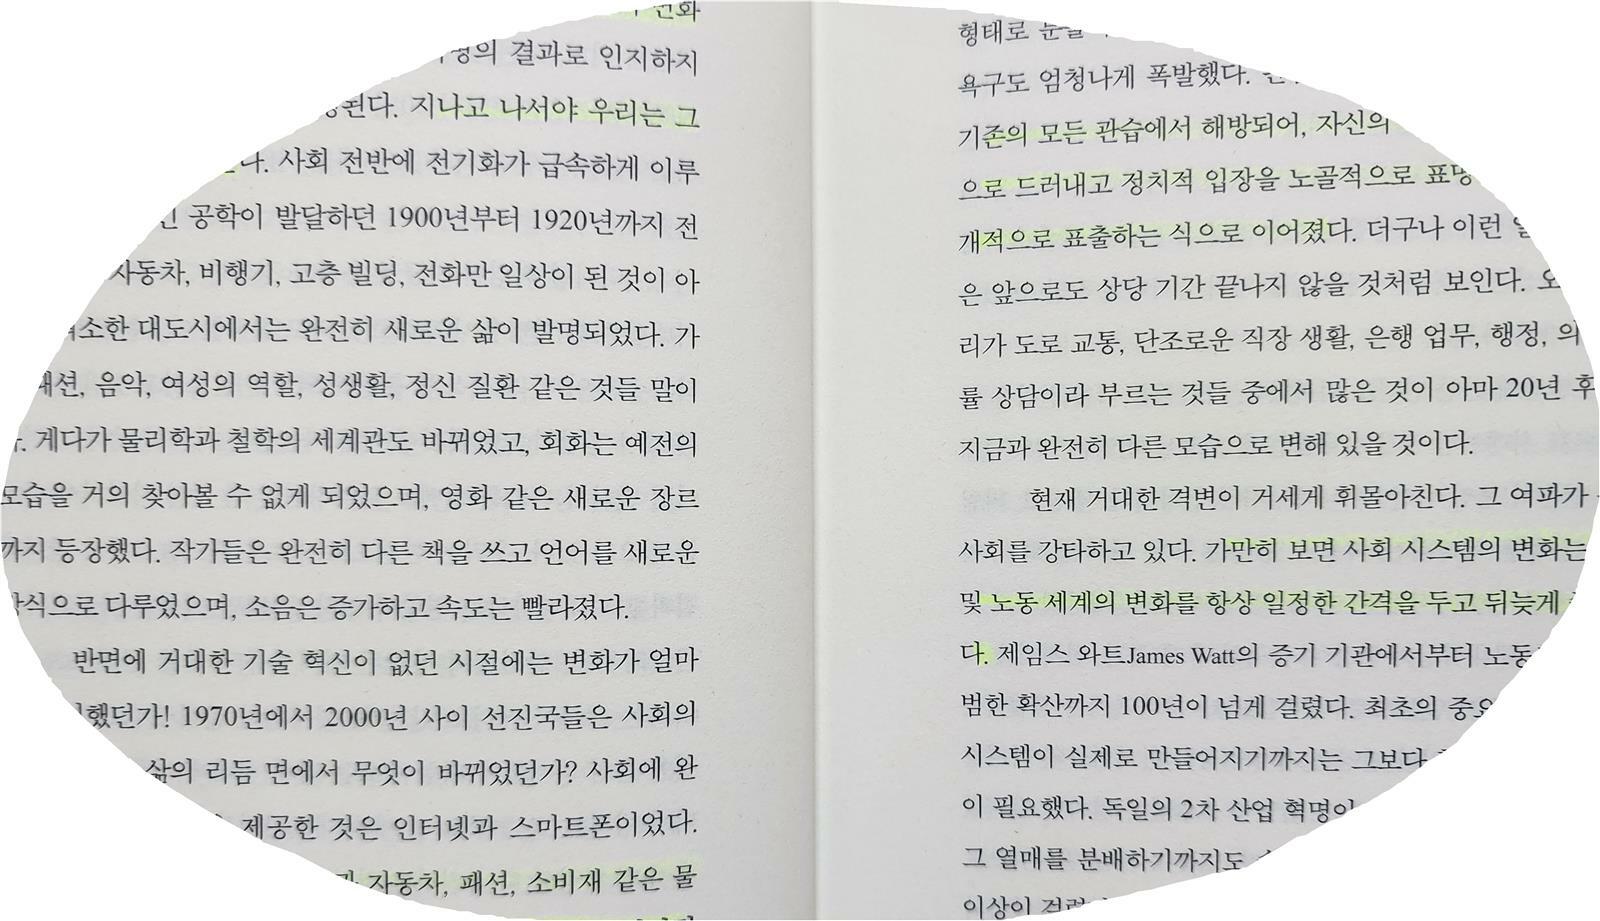 결과로 인지하지
지나고 나서야 우리는 그
사회 전반에 전기화가 급속하게 이루
공학이 발달하던 1900년부터 1920년까지 전
자동차, 비행기, 고층 빌딩, 전화만 일상이 된 것이 아
대도시에서는 완전히 새로운 삶이 발명되었다. 가
음악, 여성의 역할, 성생활, 정신 질환 같은 것들 말이
게다가 물리학과 철학의 세계관도 바뀌었고, 회화는 예전의
모습을 거의 찾아볼 수 없게 되었으며, 영화 같은 새로운 장르
까지 등장했다. 작가들은 완전히 다른 책을 쓰고 언어를 새로운
다루었으며, 소음은 증가하고 속도는 빨라졌다.
반면에 거대한 기술 혁신이 없던 시절에는 변화가 얼마
1970년에서 2000년 사이 선진국들은 사회의
삶의 리듬 면에서 무엇이 바뀌었던가? 사회에 완
제공한 것은 인터넷과 스마트폰이었다.
자동차, 패션, 소비재 같은 물
형태로
욕구도 엄청나게 폭발했다.
기존의 모든 관습에서 해방되어, 자신의
으로 드러내고 정치적 입장을 노골적으로
개적으로 표출하는 식으로 이어졌다. 더구나 이런
은 앞으로도 상당 기간 끝나지 않을 것처럼 보인다.
리가 도로 교통, 단조로운 직장 생활, 은행 업무, 행정,
률 상담이라 부르는 것들 중에서 많은 것이 아마 20년 후
지금과 완전히 다른 모습으로 변해 있을 것이다.
현재 거대한 격변이 거세게 휘몰아친다. 그 여파가
사회를 강타하고 있다. 가만히 보면 사회 시스템의 변화는
및 노동 세계의 변화를 항상 일정한 간격을 두고 뒤늦게
다. 제임스 와트James Watt의 증기 기관에서부터
범한 확산까지 100년이 넘게 걸렸다. 최초의
시스템이 실제로 만들어지기까지는 그보다
이 필요했다. 독일의 2차 산업
그 열매를 분배하기까지도
이상이